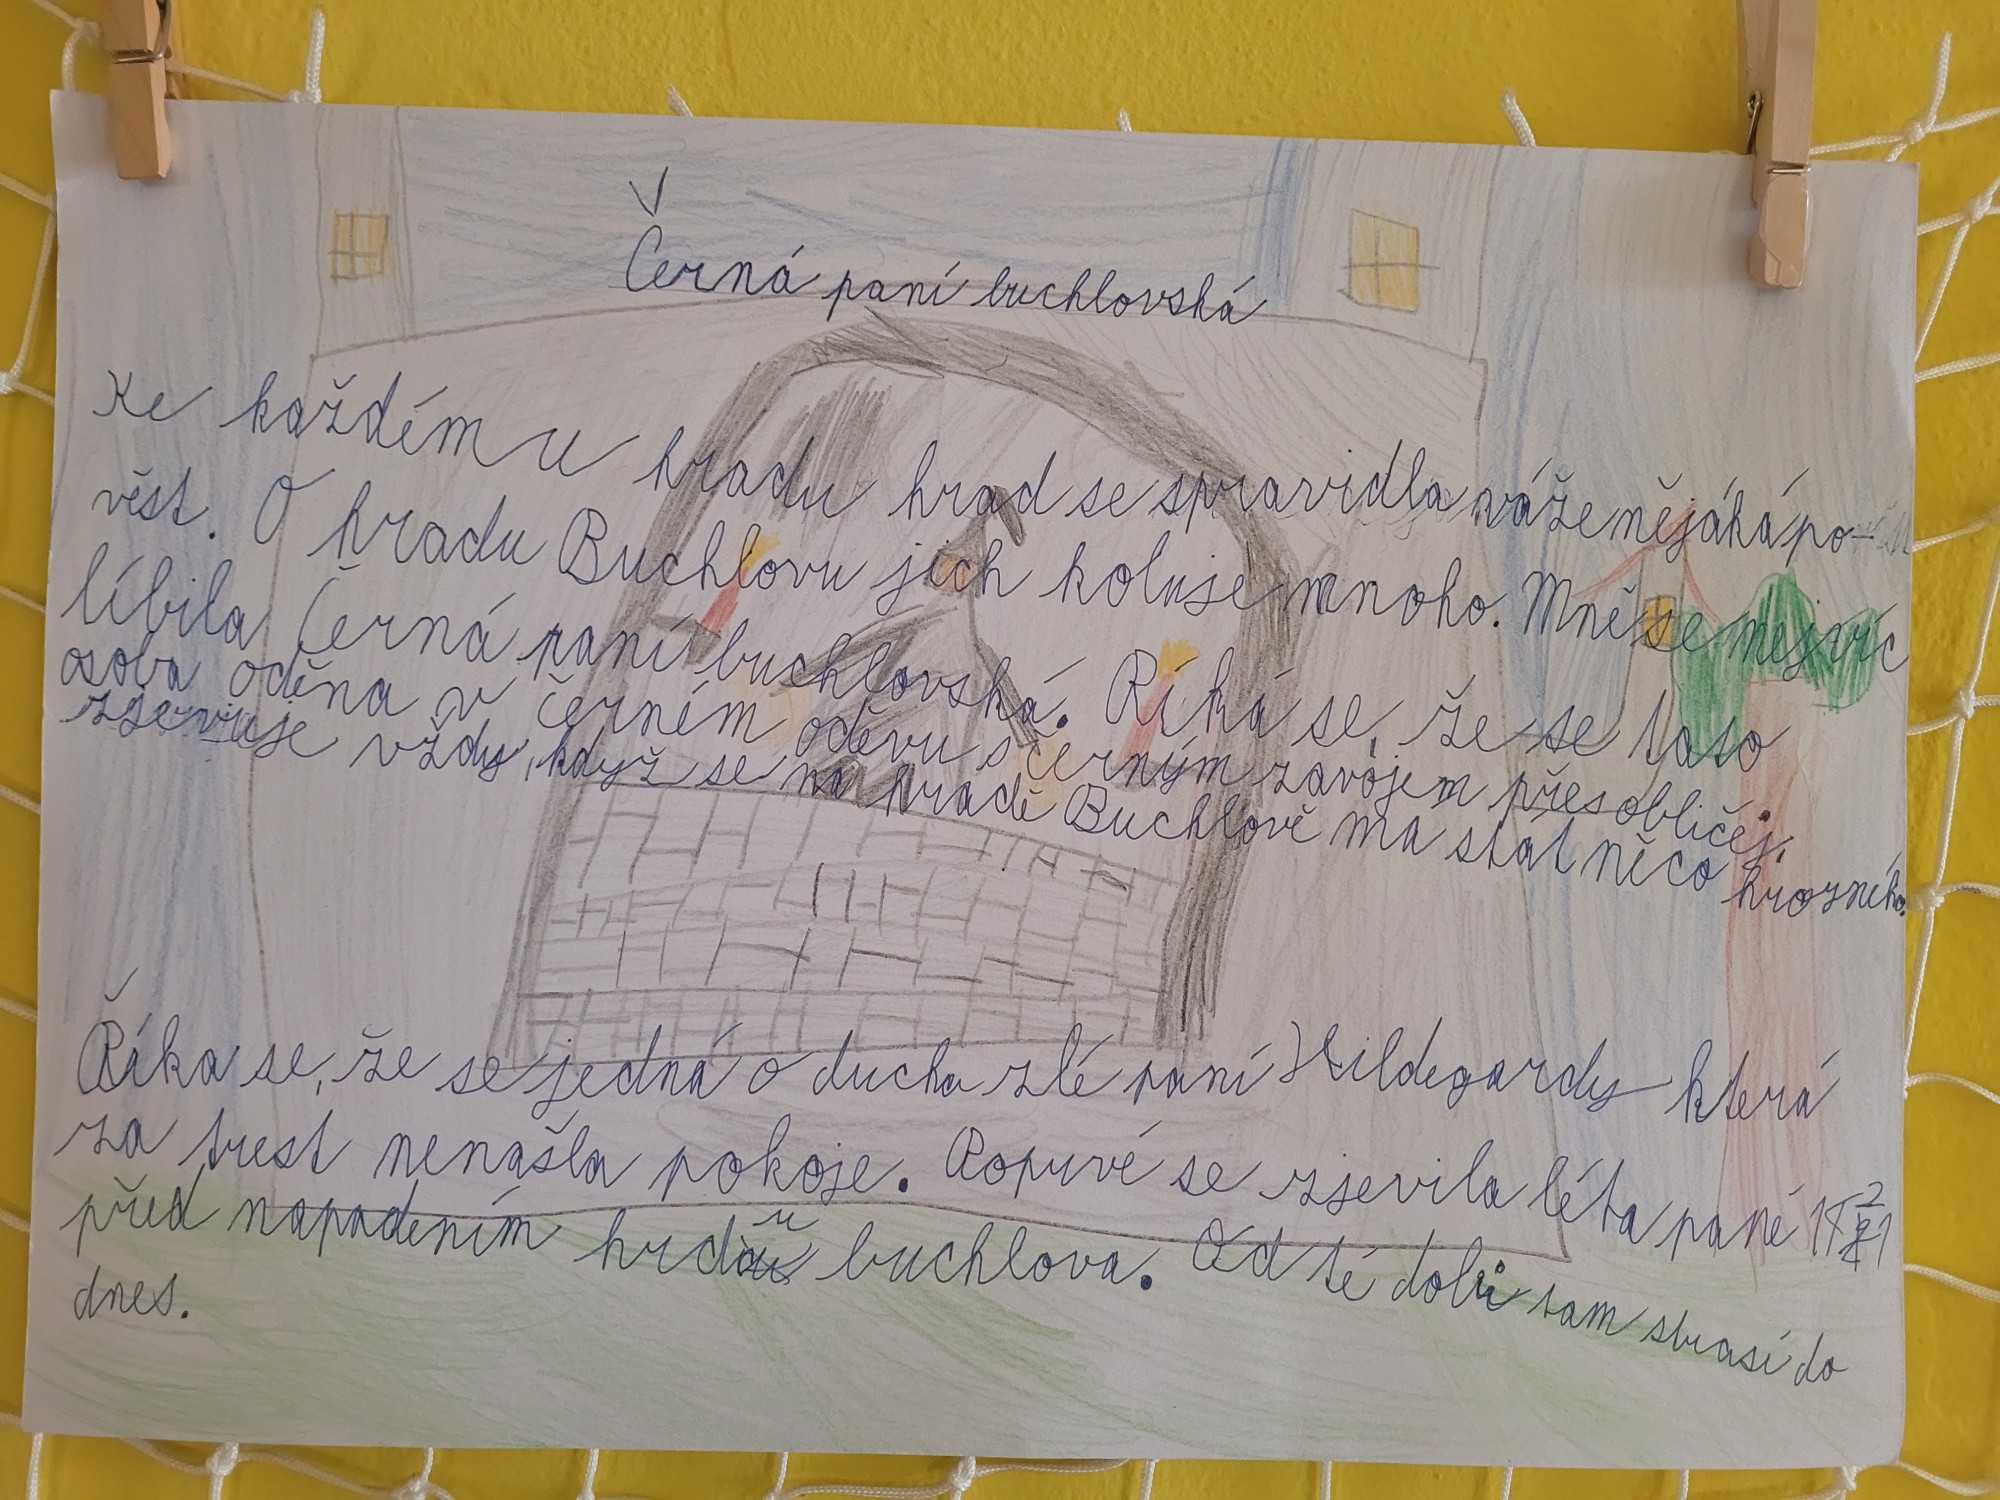 Černá paní buchlovská
Ke každému hradu hrad se spravidla váže nějáká po-
věst. O hradu Buchlovu jich koluje mnoho. Mně se nejvíc
líbila Černá paní buchlovská. Říká se, že se tato
osoba oděna v černém oděvu s černým závojem přes obličej,
zjevuje vždy, když se na hradě Buchlově má stát něco hrozného.
Říka se, že se jedná o ducha zlé paní Hildegardy která
za trest nenašla pokoje. Poprvé se zjevila léta pané
před napadením hradu buchlova. Od té dobi tam strasí do
dnes.